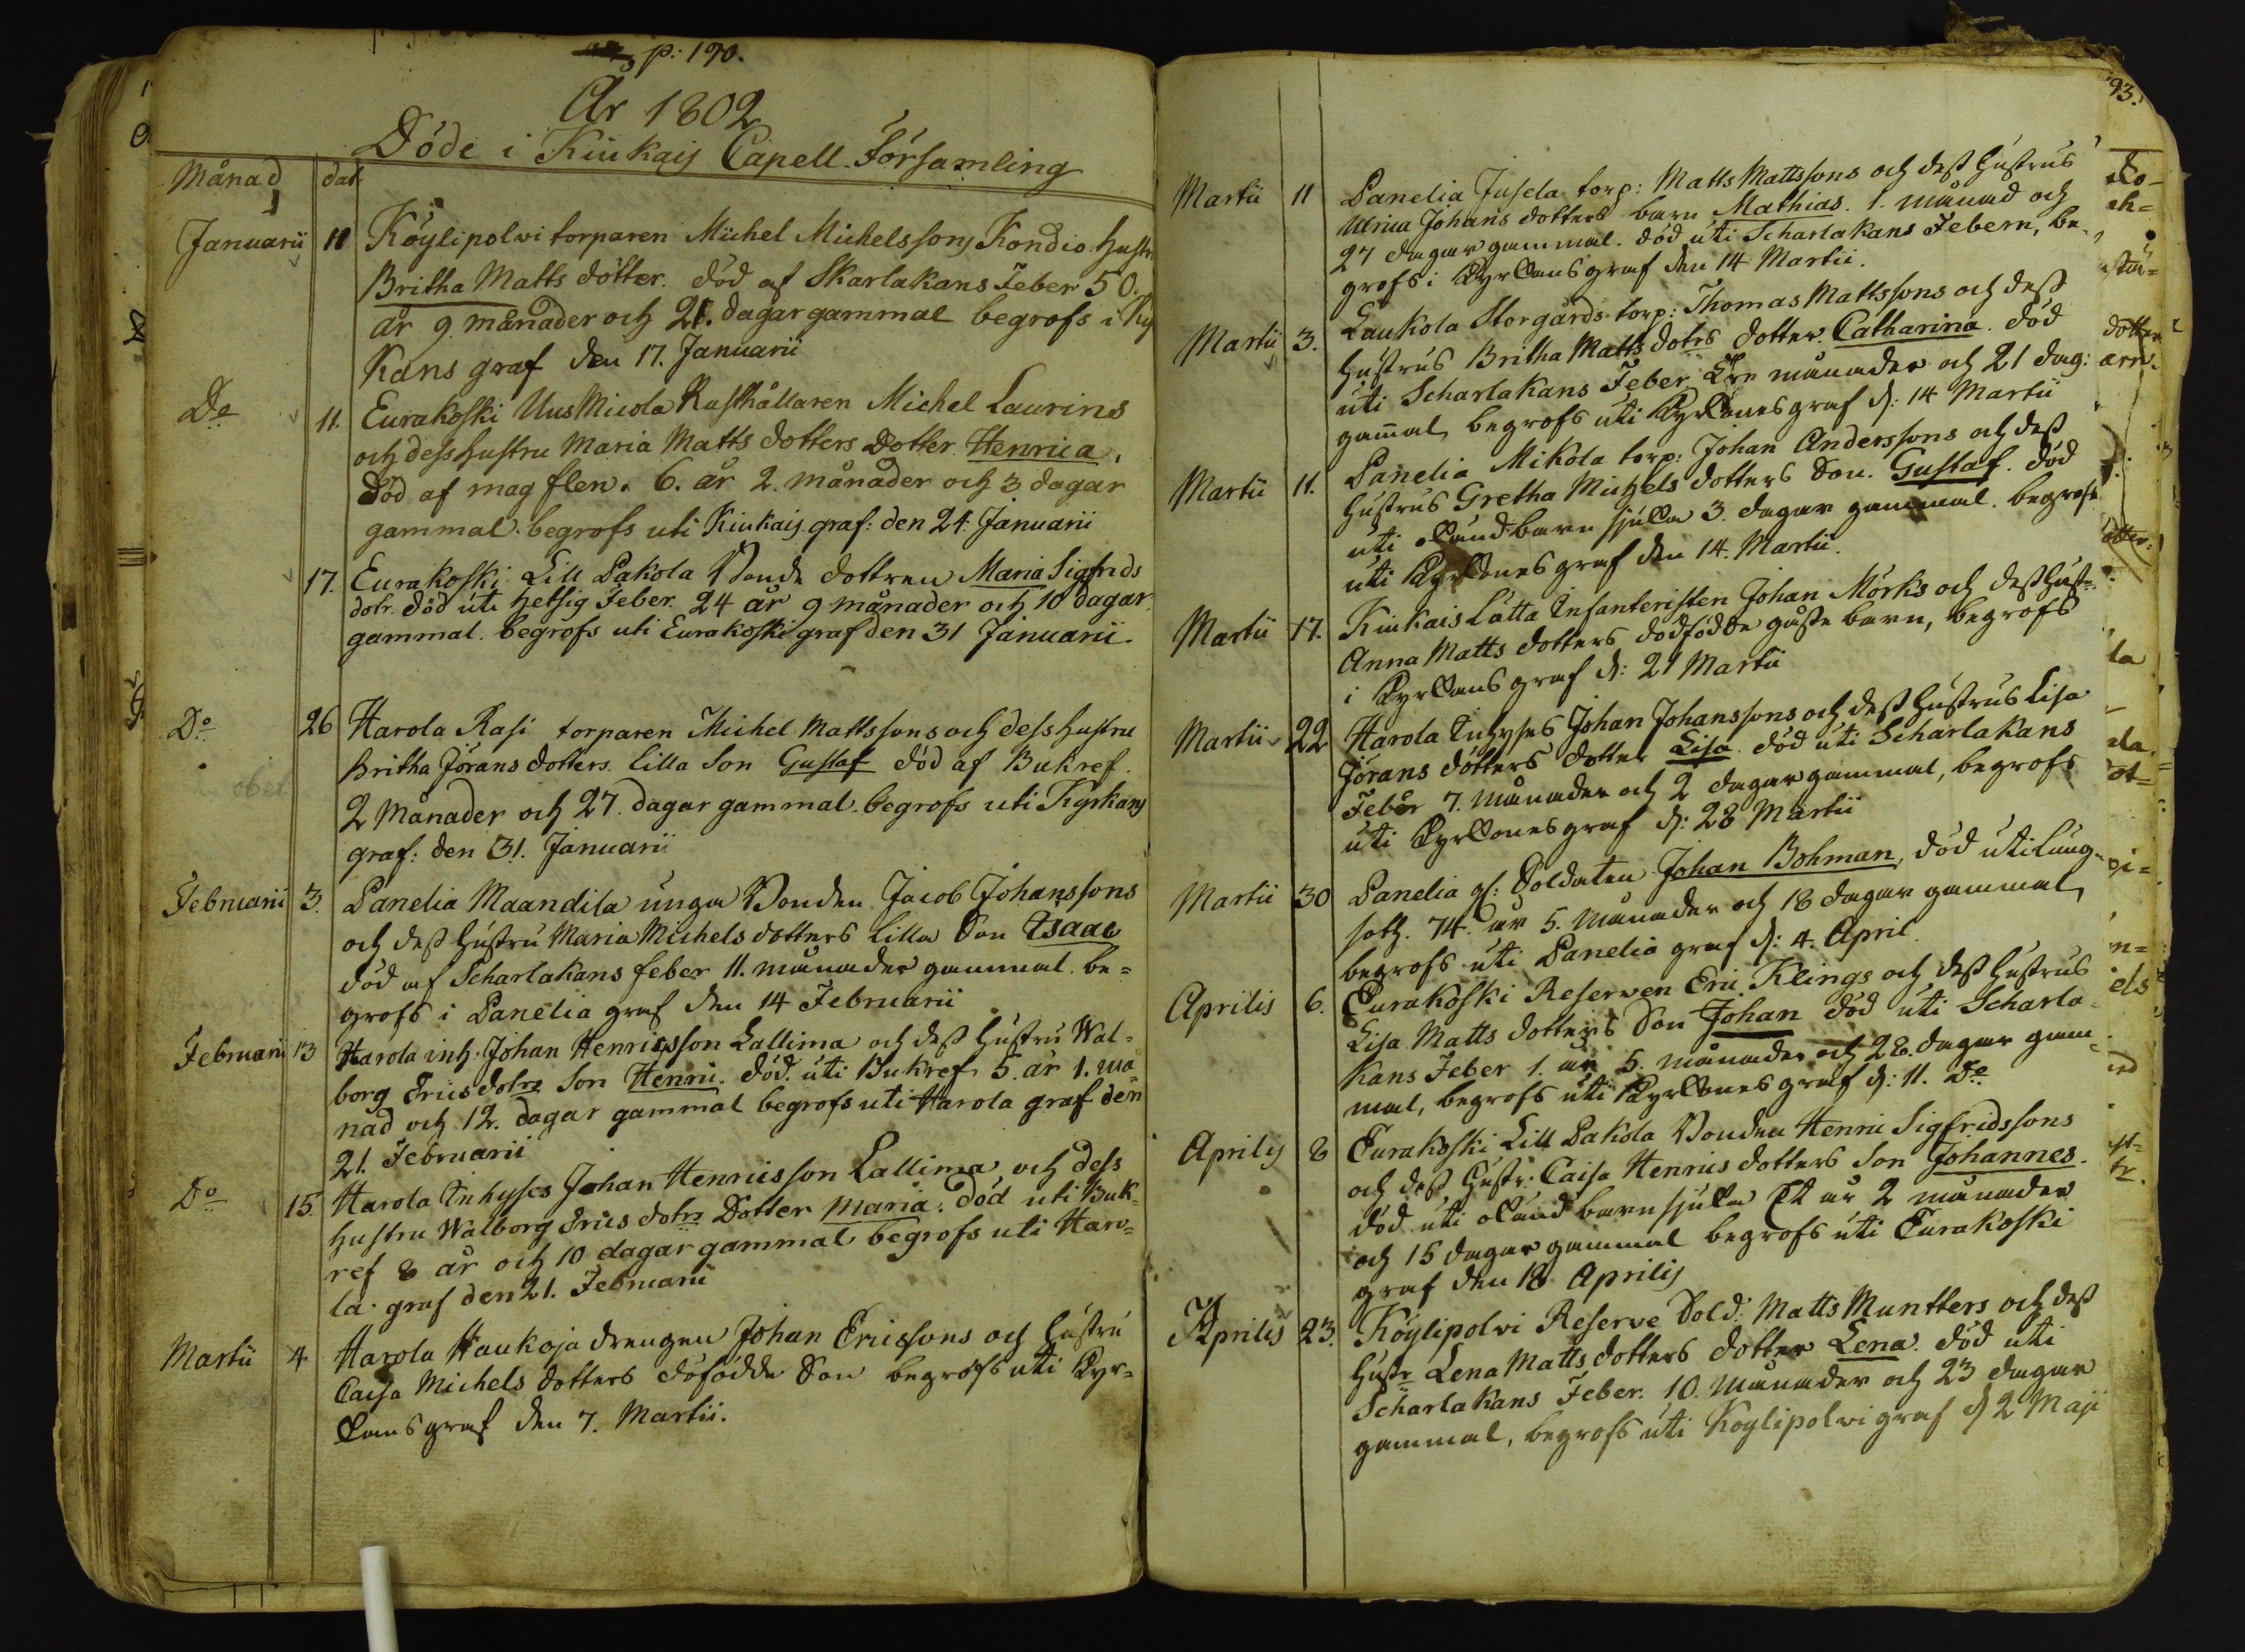 p: 190.
År 1802
Döde i Kiukais Capell Församling
Månad dat.
Januarii 11 Köylipolvi torparen Michel Michelssons Kondio hustr
Britha Matts dotter. död af Skarlakans Feber 50.
år 9 månader och 21. dagar gammal begrofs i Ky
kans graf den 17. Januarii
Do 11. Eurakoski UusMicola Rusthållaren Michel Laurins
och dess hustru Maria Matts dotters Dotter Henrica.
död af mag flen. 6. år 2. månader och 3 dagar
gammal. begrofs uti Kiukais graf: den 24. Januarii
17. Eurakoski Lill Pakola Bonde dottren Maria Sigfrids
dotr. död uti hetsig Feber. 24 år 9 månader och 10 dagar
gammal. begrofs uti Eurakoski graf den 31 Januarii
Do 26 Harola Rasi torparen Michel Mattssons och dess hustru
Britha Jörans dotters. lilla Son Gustaf död af Bukref.
2 Månader och 27. dagar gammal. begrofs uti Kyrkans
graf: den 31. Januarii
Februarii 3. Panelia Maandila unga Bonden Jacob Johanssons
och dess hustru Maria Michels dotters lilla Son Isaac
död af Scharlakans feber 11. månader gammal. be=
grofs i Panelia graf den 14 Februarii
Februarii 13 Harola inh. Johan Henricsson Lallima och dess hustru Wal=
borg Erics dotrs Son Henric. död. uti Bukref 5. år 1. må
nad och 12. dagar gammal begrofs uti Harola graf den
21. Februarii
Do 15. Harola Inhyses Johan Henricsson Lallima och dess
hustru Walborg Erics dotrs Dotter Maria. död uti Buk=
ref 8 år och 10 dagar gammal begrofs uti Haro=
la graf den 21. Februarii
Martii 4. Harola Haukoja drengen Johan Ericssons och hustru
Caisa Michels dotters döfödde Son begrofs uti Kyr=
kans graf den 7. Martii.
93.
Martii 11 Panelia Jusela torp: Matts Mattssons och dess hustrus
Ulrica Johans dotters barn Mathias. 1. månad och
27 dagar gammal. död uti Scharlakans Febern, be
grofs i Kyrkans graf den 14 Martii.
Martii 3. Laukola Storgårds torp: Thomas Mattssons och dess
hustrus Britha Matts dotrs dotter Catharina. död
uti Scharlakans Feber Tre månader och 21 dag:
gammal, begrofs uti Kyrkones graf d: 14 Martii
Martii 11. Panelia Mikola torp: Johan Anderssons och dess
hustrus Gretha Michels dotters Son. Gustaf. död
uti okänd barn sjuka 3. dagar gammal. begrofs
uti Kyrkones graf den 14. Martii.
Martii 17. Kiukais Lätta Infanteristen Johan Mörks och dess hust=
Anna Matts dotters dödfödde gosse barn, begrofs
i Kyrkans graf d: 21 Martii
Martii 22 Harola Inhyses Johan Johanssons och dess hustrus Lisa
Jörans dotters dotter Lisa. död uti Scharlakans
Feber 7. Månader och 2 dagar gammal, begrofs
uti Kyrkones graf d: 28 Martii
Martii 30 Panelia gl: Soldaten Johan Bohman, död uti Lung=
sotz. 74. år 5. Månader och 18 dagar gammal,
begrofs uti Panelia graf d: 4. April.
Aprilis 6. Eurakoski Reserven Eric Klings och dess hustrus
Lisa Matts dotters Son Johan död uti Scharla
kans Feber 1. år 5. månader och 28. dagar gam
mal, begrofs uti Kyrkones graf d: 11. Do
Aprilis 8 Eurakoski Lill Pakola Bonden Henric Sigfridssons
och dess hustr: Caisa Henrics dotters Son Johannes.
död uti okänd barn sjuka Et år 2 månader
och 15 dagar gammal begrofs uti Eurakoski
graf den 18 Aprilis
Aprilis 23. Köylipolvi Reserve Sold: Matts Muntters och dess
hustr Lena Matts dotters dotter Lena. död uti
Scharlakans Feber. 10. Månader och 23 dagar
gammal, begrofs uti Köylipolvi graf d 2 Maji